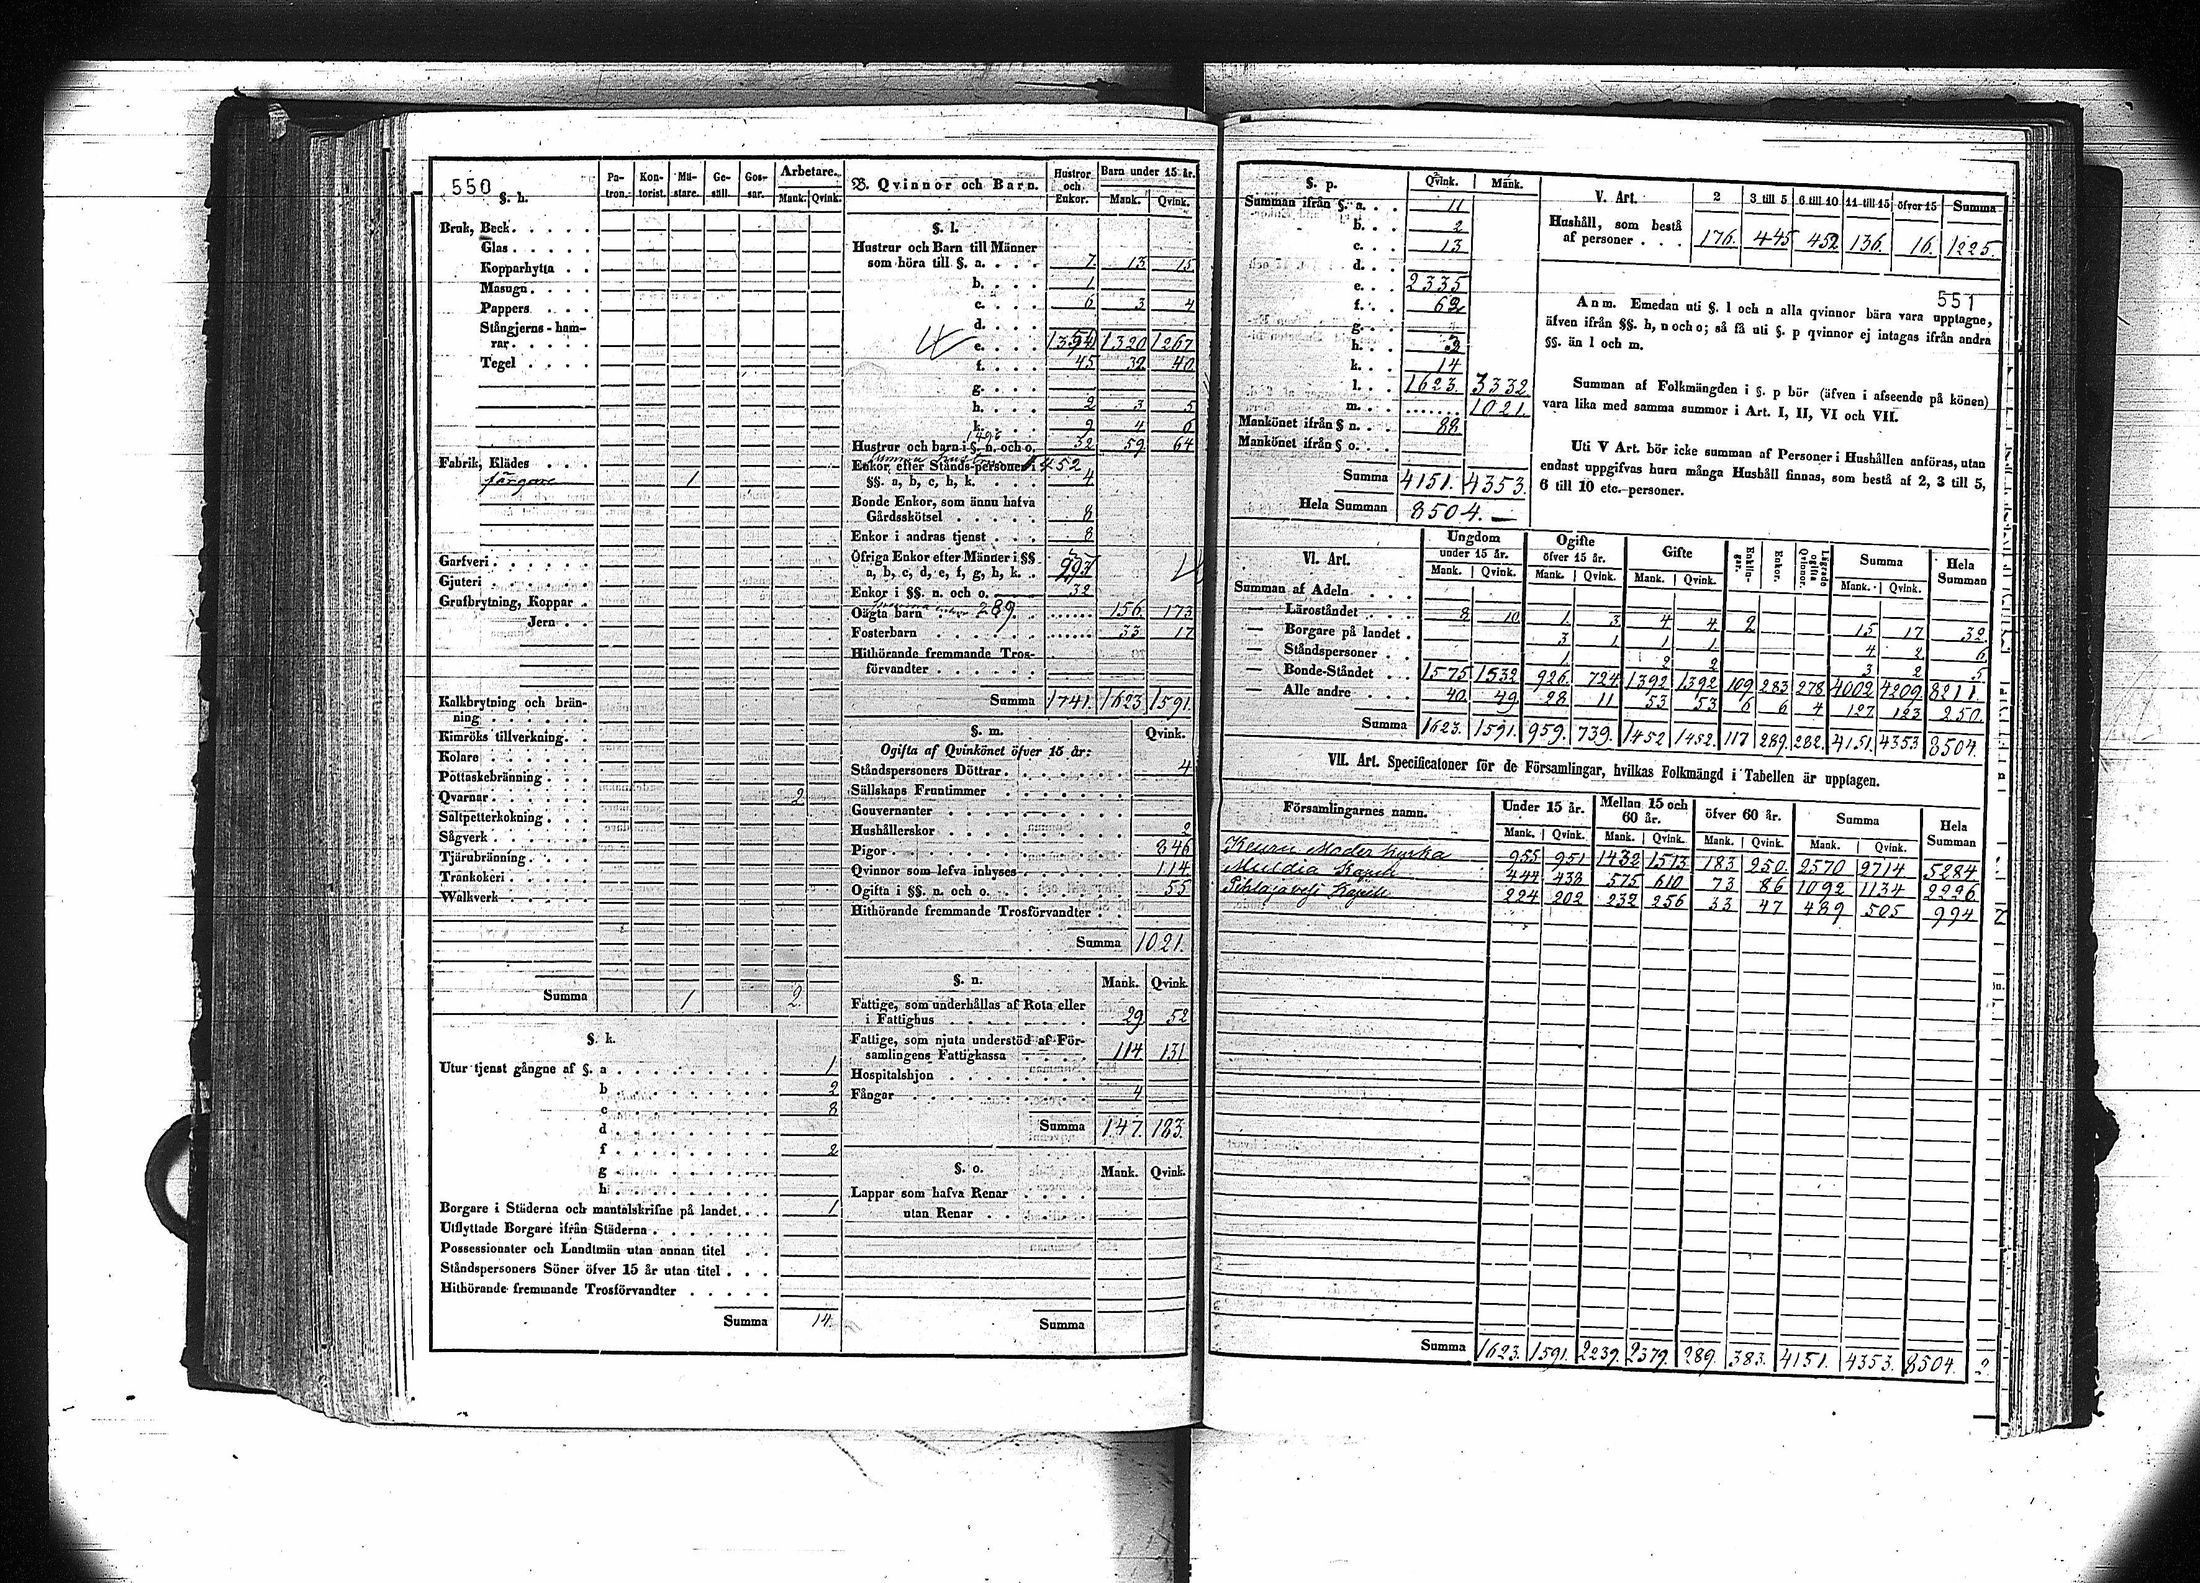 550
§. h.
Pa-tron. Kon-torist. Mä-stare. Ge-säll. Gos-sar. Arbetare. Mank. Qvink.
Bruk, Beck . . . . .
Glas . . . . .
Kopparhytta . .
Masugn . . . .
Pappers . . .
Stångjerns-ham-
rar . . . . .
Tegel . . . .
Fabrik, Klädes . . .
färgare 1
Garfveri . . . . . .
Gjuteri . . . . . .
Grufbrytning, Koppar .
Jern . .
Kalkbrytning och brän-
ning . . . . . .
Kimröks tillverkning. .
Kolare . . . . . .
Pottaskebränning . . .
Qvarnar . . . . . . 2
Saltpetterkokning . . .
Sågverk . . . . . .
Tjärubränning . . . .
Trankokeri . . . . .
Walkverk . . . . .
Summa 1 2.
§. k.
Utur tjenst gångne af §. a . . . . 1
b . . . . 2
c . . . . 8
d . . . .
f . . . . 2
g . . . .
h . . . .
Borgare i Städerna och mantalskrifne på landet. . . 1
Utflyttade Borgare ifrån Städerna . . . .
Possessionater och Landtmän utan annan titel . .
Ståndspersoners Söner öfver 15 år utan titel . . .
Hithörande fremmande Trosförvandter . . . . .
Summa 14.
B. Qvinnor och Barn. Hustror och Enkor. Barn under 15 år. Mank. Qvink.
§. l.
Hustrur och Barn till Männer
som höra till §. a. . . . 7. 13 15
b. . . . 1
c. . . . 6 3 4
d. . . .
e. . . . 1354 1320 1267
f. . . . 45 32 40
g. . . .
h. . . . 2 3 5
k. . . . 9 4 6
Hustrur och barn i §. n. och o. 32 59 64
Enkor efter Stånds-personer i 1452
§§. a, b, c, h, k. . . . 4
Bonde Enkor, som ännu hafva
Gårdsskötsel . . . . . 8
Enkor i andras tjenst . . . 8
Öfriga Enkor efter Männer i §§
a, b, c, d, e, f, g, h, k. .
Enkor i §§. n. och o. 32
Oägta barn 289. 156 173
Fosterbarn . . . . . 33 17
Hithörande fremmande Tros-
förvandter . . . . .
Summa 1741. 1623 1591.
§. m. Qvink.
Ogifta af Qvinkönet öfver 15 år:
Ståndspersoners Döttrar . . . . 4
Sällskaps Fruntimmer . . . .
Gouvernanter . . . .
Hushållerskor . . . . 2
Pigor . . . . 846
Qvinnor som lefva inhyses . . . . 114
Ogifta i §§. n. och o. . . . 55
Hithörande fremmande Trosförvandter . .
Summa 1021.
§. n. Mank. Qvink.
Fattige, som underhållas af Rota eller
i Fattighus . . . . 29 52
Fattige, som njuta understöd af För-
samlingens Fattigkassa . . . . 114 131
Hospitalshjon . . . .
Fångar . . . . 4
Summa 147. 183.
§. o. Mank. Qvink.
Lappar som hafva Renar . . . .
utan Renar . . . .
Summa
§. p. Qvink. Mank.
Summan ifrån §. a. . . 11
b. . . 2
c. . . 13
d. . .
e. . . 2335
f. . . 62
g. . .
h. . . 3
k. . . 14
l. . . 1623. 3332
m. . . 1021.
Mankönet ifrån § n. . . 88
Mankönet ifrån § o. . .
Summa 4151. 4353.
Hela Summan 8504.
V. Art. 2 3 till 5 6 till 10 11 till 15 öfver 15 Summa
Hushåll, som bestå
af personer . . . 176. 445 452 136. 16. 1225.
551
Anm. Emedan uti §. l och n alla qvinnor bära vara upptagne,
äfven ifrån §§. h, n och o; så få uti §. p qvinnor ej intagas ifrån andra
§§. än l och m.
Summan af Folkmängden i §. p bör (äfven i afseende på könen)
vara lika med samma summor i Art. I, II, VI och VII.
Uti V Art. bör icke summan af Personer i Hushållen anföras, utan
endast uppgifvas huru många Hushåll finnas, som bestå af 2, 3 till 5,
6 till 10 etc. personer.
VI. Art. Ungdom under 15 år. Mank. Qvink. Ogifte öfver 15 år. Mank. Qvink. Gifte Mank. Qvink. Enklin-gar. Enkor. Lägrade ogifta Qvinnor. Summa Mank. Qvink. Hela Summan
Summan af Adeln . . .
— Läroståndet . . 8 10 1. 3 4 4 2 15 17 32.
— Borgare på landet . 3 1 1 1. 4 2 6
— Ståndspersoner . . 1. 2 2 3 2 5
— Bonde-Ståndet . . 1575 1532 926. 724 1392 1392 109 283 278 4002 4209 8211
— Alle andre . . . 40. 49 28 11 53 53 6 6 4 127 123 250.
Summa 1623. 1591. 959. 739. 1452 1452. 117 289. 282. 4151. 4353 8504
VII. Art. Specificationer för de Församlingar, hvilkas Folkmängd i Tabellen är upptagen.
Församlingarnes namn. Under 15 år. Mank. Qvink. Mellan 15 och 60 år. Mank. Qvink. öfver 60 år. Mank. Qvink. Summa Mank. Qvink. Hela Summan
Keuru Moder kyrka 955 951 1432 1513 183 250. 2570 2714 5284
Multia Kapell 444 438 575 610 73 86 1092 1134 2226
Pihlajavesi Kapell 224 202 232 256 33 47 489 505 994
Summa 1623. 1591. 2239. 2379. 289. 383. 4151. 4353. 8504.